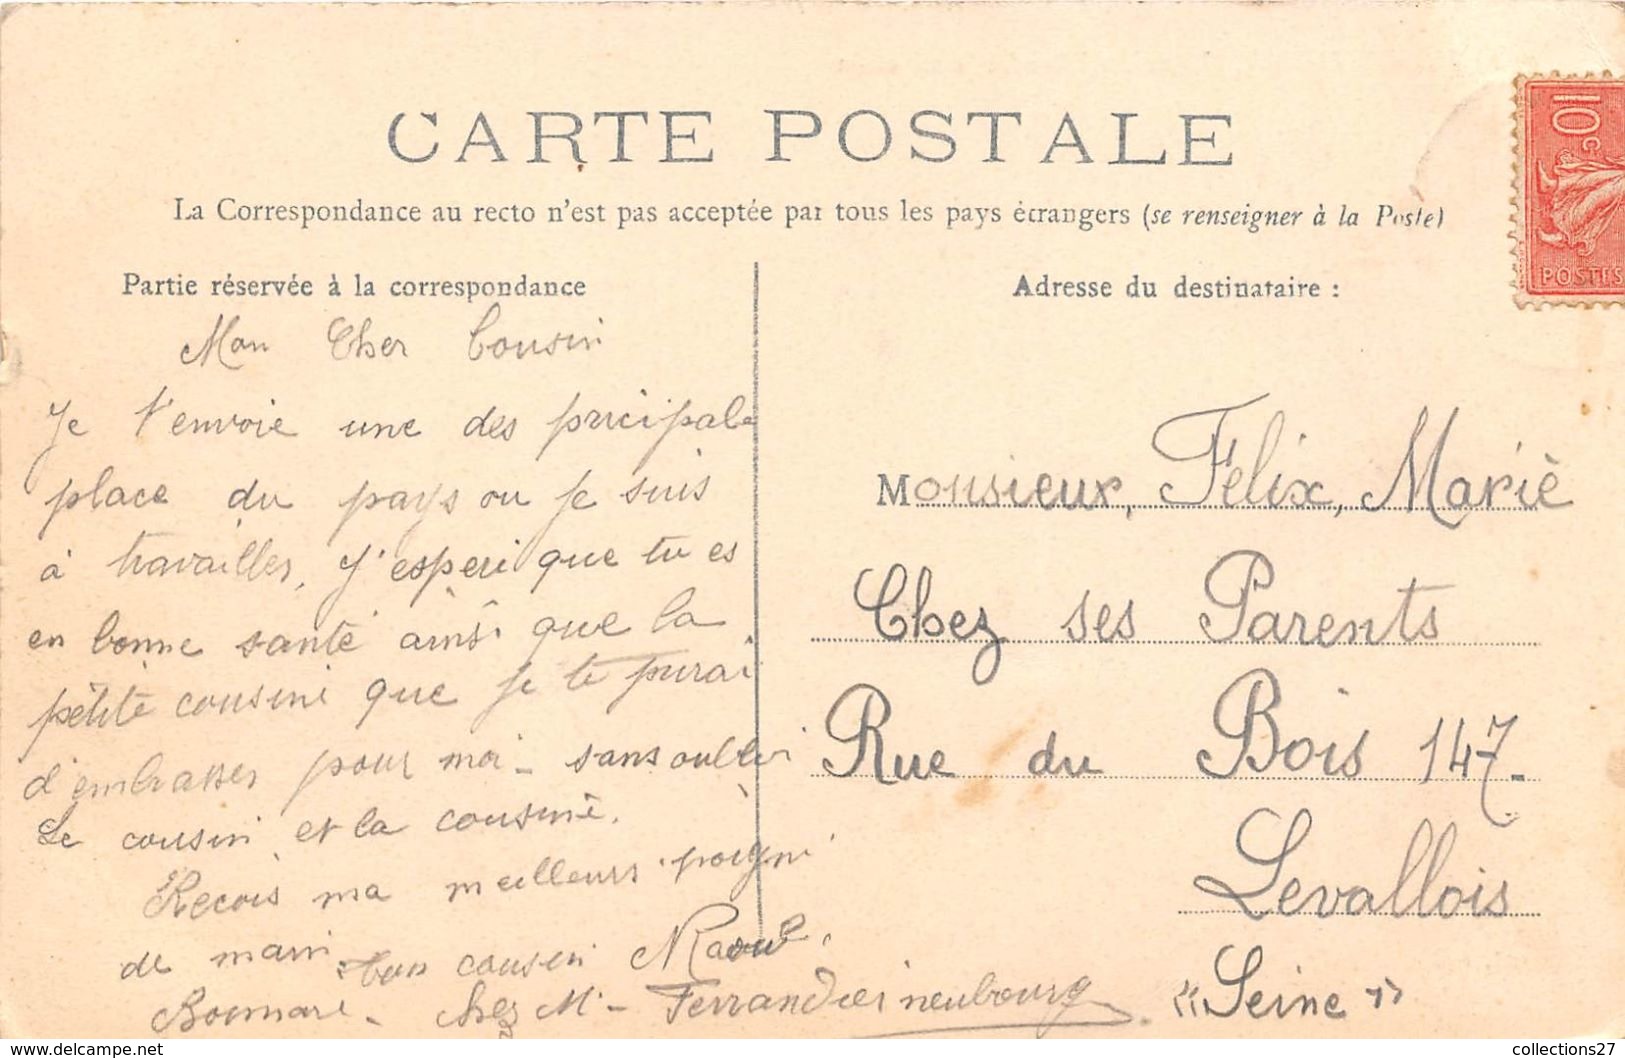 CARTE POSTALE
La Correspondance au recto n'est pas acceptée par tous les pays étrangers (se renseigner à la Poste)
Partie réservée à la correspondance
Mon Cher Cousin
Je t'envoie une des pricipale
place du pays ou je suis
à travailler, J'esperé que tu es
en bonne santé ainsi que la
pétite cousine que je te purai
d'embrasser pour moi - sans oublier
Le cousin et la cousine.
Recois ma meilleurs poigné
de main. ton cousin Raoul
chez Mr - Ferrandier neubourg
Adresse du destinataire :
Monsieur, Felix, Mariè
Chez ses Parents
Rue du Bois 147.
Levallois
"Seine"
10c
POSTES
collections27